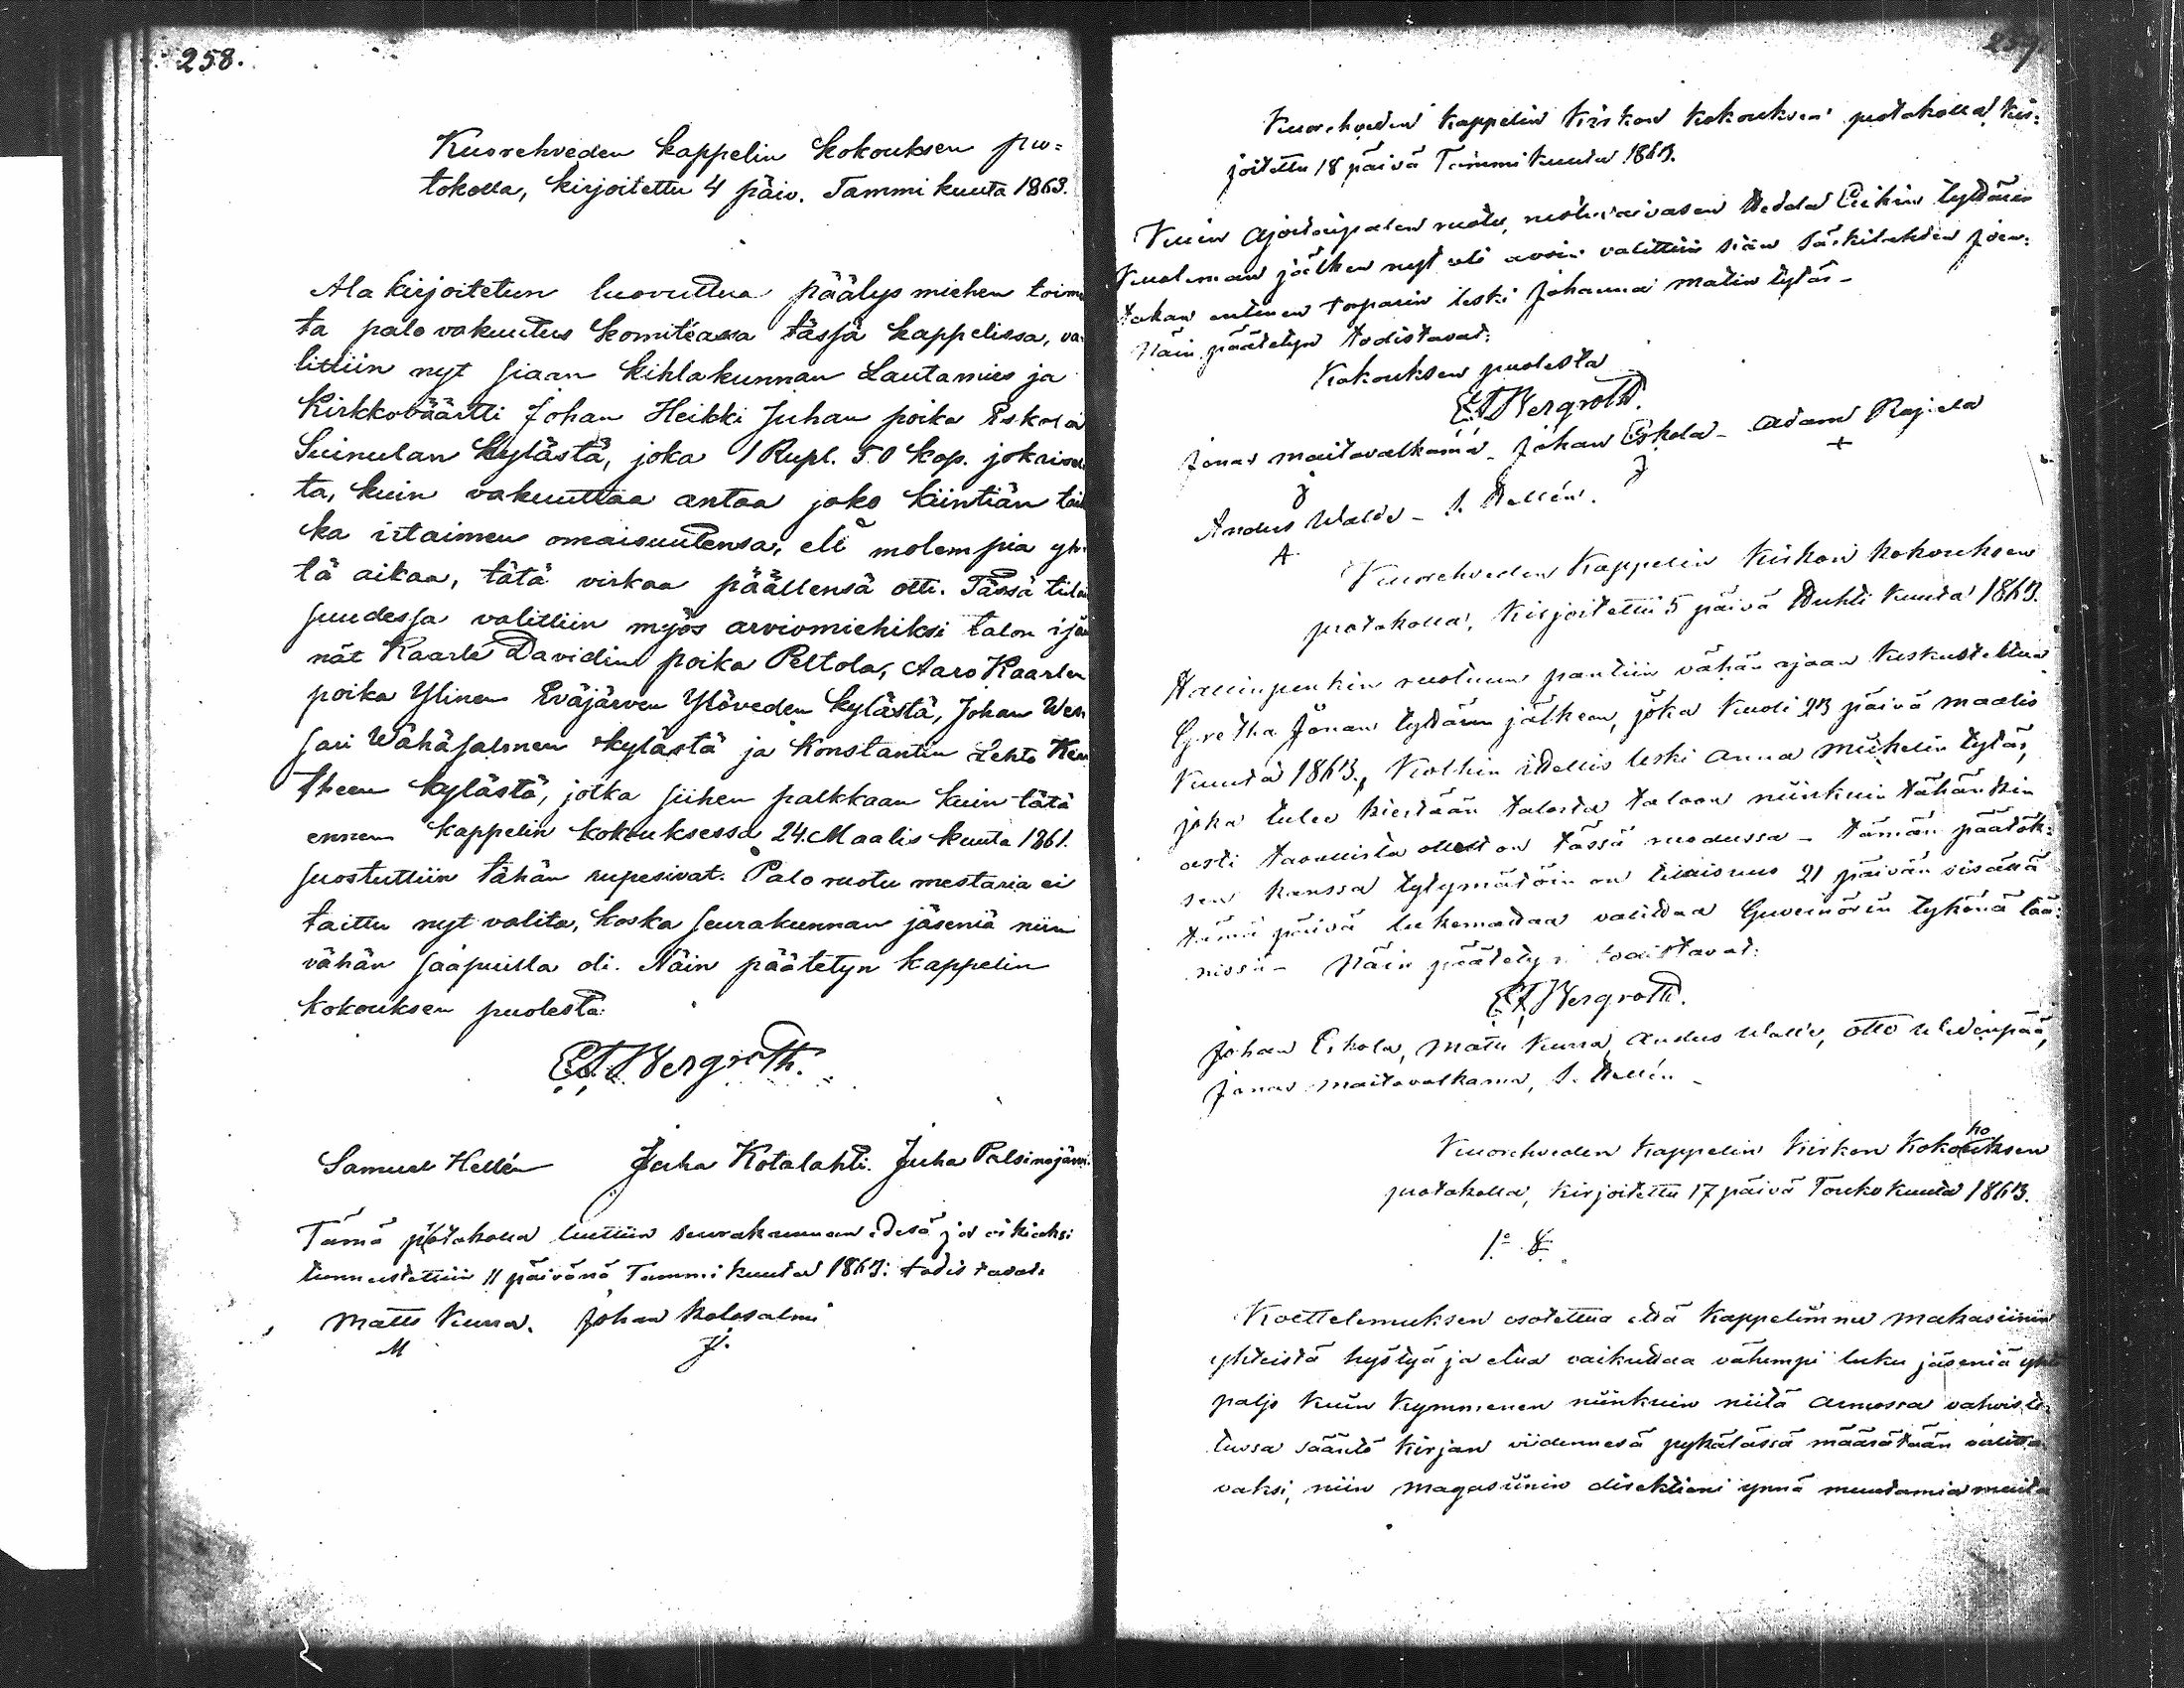 258.
Kuorehveden kappelin kokouksen pro=
tokolla, kirjoitettu 4 päiv. Tammi kuuta 1863.
Ala kirjoitetun luovuttua päälys miehen toimi
ta palo vakuutus komitéassa tässä kappelissa, va
littiin nyt siaan kihlakunnan Lautamies ja
Kirkkoväärtti Johan Heikki Juhan poika Eskola
Suinulan kylästä, joka 1 Rupl. 50 kop. jokaisel
ta, kuin vakuuttaa antaa joko kiintiän tai
ka irtaimen omaisuutensa, eli molempia yh
tä aikaa, tätä virkaa päällensä otti. Tässä tilai
suudessa valittiin myös arviomiehiksi talon isän
nät Kaarle Davidin poika Peltola, Aaro Kaarlen
poika Ylinen Eväjärven Ylöveden kylästä, Johan Wes
sari Wähäsalmen kylästä ja Konstantin Lehto Keu
theen kylästä, jotka siihen palkkaan kuin tätä
ennen kappelin kokouksessa 24. Maalis kuuta 1861.
suostuttiin tähän rupesivat. Palo ruotu mestaria ei
taittu nyt valita, koska seurakunnan jäseniä niin
vähän saapuilla oli. Näin päätetyn kappelin
kokouksen puolesta:
E. J. Bergroth.
Samuel Hellén Juha Kotalahti. Juha Palsinajärvi.
Tämä protokolla luettiin seurakunnan edesä ja oikiaksi
tunnustettiin 11 päivänä Tammi kuuta 1863: todistavat:
Matts Kurra. Johan Kolosalmi
M J.
259
Kuorehveden kappelin kirkon kokouksen protokolla, kir=
joitettu 18 päivä Tammi kuuta 1863.
Kuin ruotu, ruotuvaivasen Hedda Erikin tyttären
kuoleman jälken nyt oli avoin valittiin siian Säkilahden
takan entinen torparin leski Johanna Matin tytär -
Näin päätetyn todistavat:
Kokouksen puolesta
E. J. Bergroth.
Jonas Maitovalkama - Johan Eskola - Adam Rajala
J J +
Andus Walle - S. Hellén.
A
Kuorehveden Kappelin kirkon kokouksen
protokolla, kirjoitettu 5 päivä Huhti kuuta 1863.
Hallinpenkin ruotuun pantiin vähän ajaan keskusteltua
Gretha Jonan tyttären jälkeen, joka kuoli 23 päivä Maalis
kuuta 1863, Kolhin leski Anna Mikkelin tytär,
joka tulee kiertään talosta taloon niinkuin tähänkin
asti tavallista ollut on tässä ruodussa - Tämän päätök=
sen kanssa tytymätöin on tilaisuus 21 päivän sisällä
tämä päivä lukematta valittaa Guvernörin tykönä lää=
nissä - Näin päätetyn todistavat:
E. J. Bergroth.
Johan Eskola, Matti Kurra, Andus Walle, Otto Uldenpää,
Jonas Maitovalkama, S. Hellén -
Kuorehveden kappelin kirkon kokouksen
ho
protokolla, kirjoitettu 17 päivä Touko kuuta 1863.
1:o §
Koettelemuksen osotettua että kappelimme makasiinin
yhteistä hyötyä ja etua vaikuttaa vähempi luku jäseniä yhtä
paljo kuin kymmenen niinkuin niitä armossa vahviste=
tussa sääntö kirjan viidennesä pykälässä määrätään valitta
vaksi, niin magasiinin direktioni ynnä muutamia muita